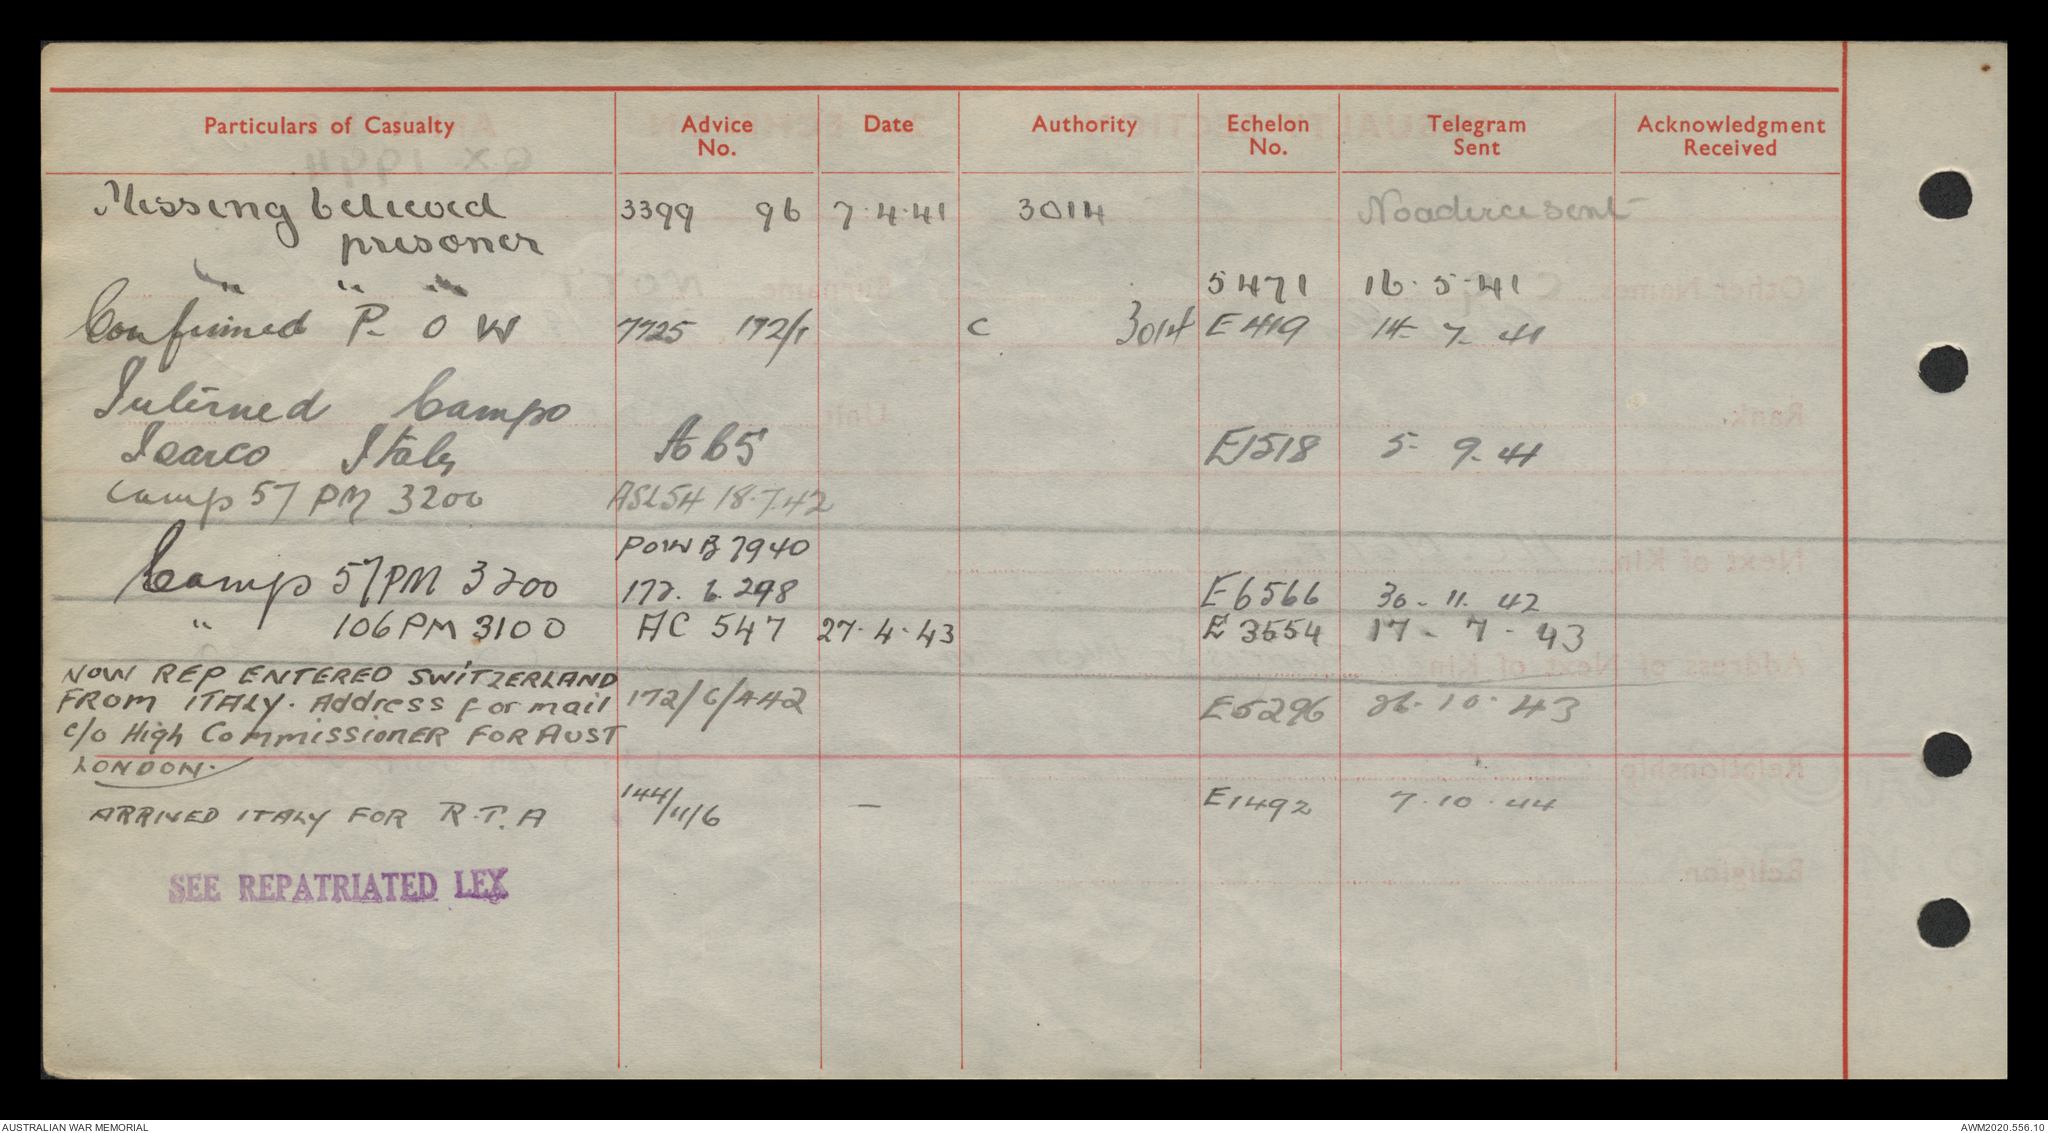 Particulars of Casualty Advice No. Date Authority Echelon No. Telegram Sent Acknowledgment Received
Missing believed 3399 96 7.4.41 3014 No advice sent
prisoner
" " " 5471 16.5.41
Confirmed P. O W 7725 172/1 C 3014 E 419 14-7-41
Interned Campo
Isarco Italy A 65 E1518 5-9-41
Camp 57 PM 3200 ASL54 18.7.42
POW B 7940
Camp 57 PM 3200 172.6.298 E6566 30-11-42
" 106 PM 3100 AC 547 27.4.43 E 3554 17-7-43
NOW REP ENTERED SWITZERLAND
FROM ITALY. Address for mail 172/6/442 E5296 26.10.43
c/o High COMMISSIONER FOR AUST
LONDON.
ARRIVED ITALY FOR R.T.A 144/11/6 — E1492 7.10.44
SEE REPATRIATED LEX
AUSTRALIAN WAR MEMORIAL AWM2020.556.10